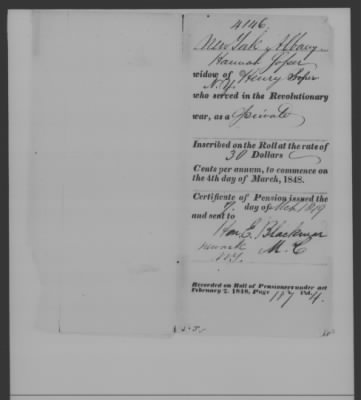 4146.
New York, Albany
Hannah Soper
widow of Henry Soper
N.Y.
who served in the Revolutionary
war, as a private
Inscribed on the Roll at the rate of
30 Dollars
Cents per annum, to commence on
the 4th day of March, 1848.
Certificate of Pension issued the
7. day of Mch 1849
and sent to
Hon. E. Blackmar
Newark M.C
N.Y.
Recorded on Roll of Pensioners under act
February 2, 1848, Page 187 Vol. 4.